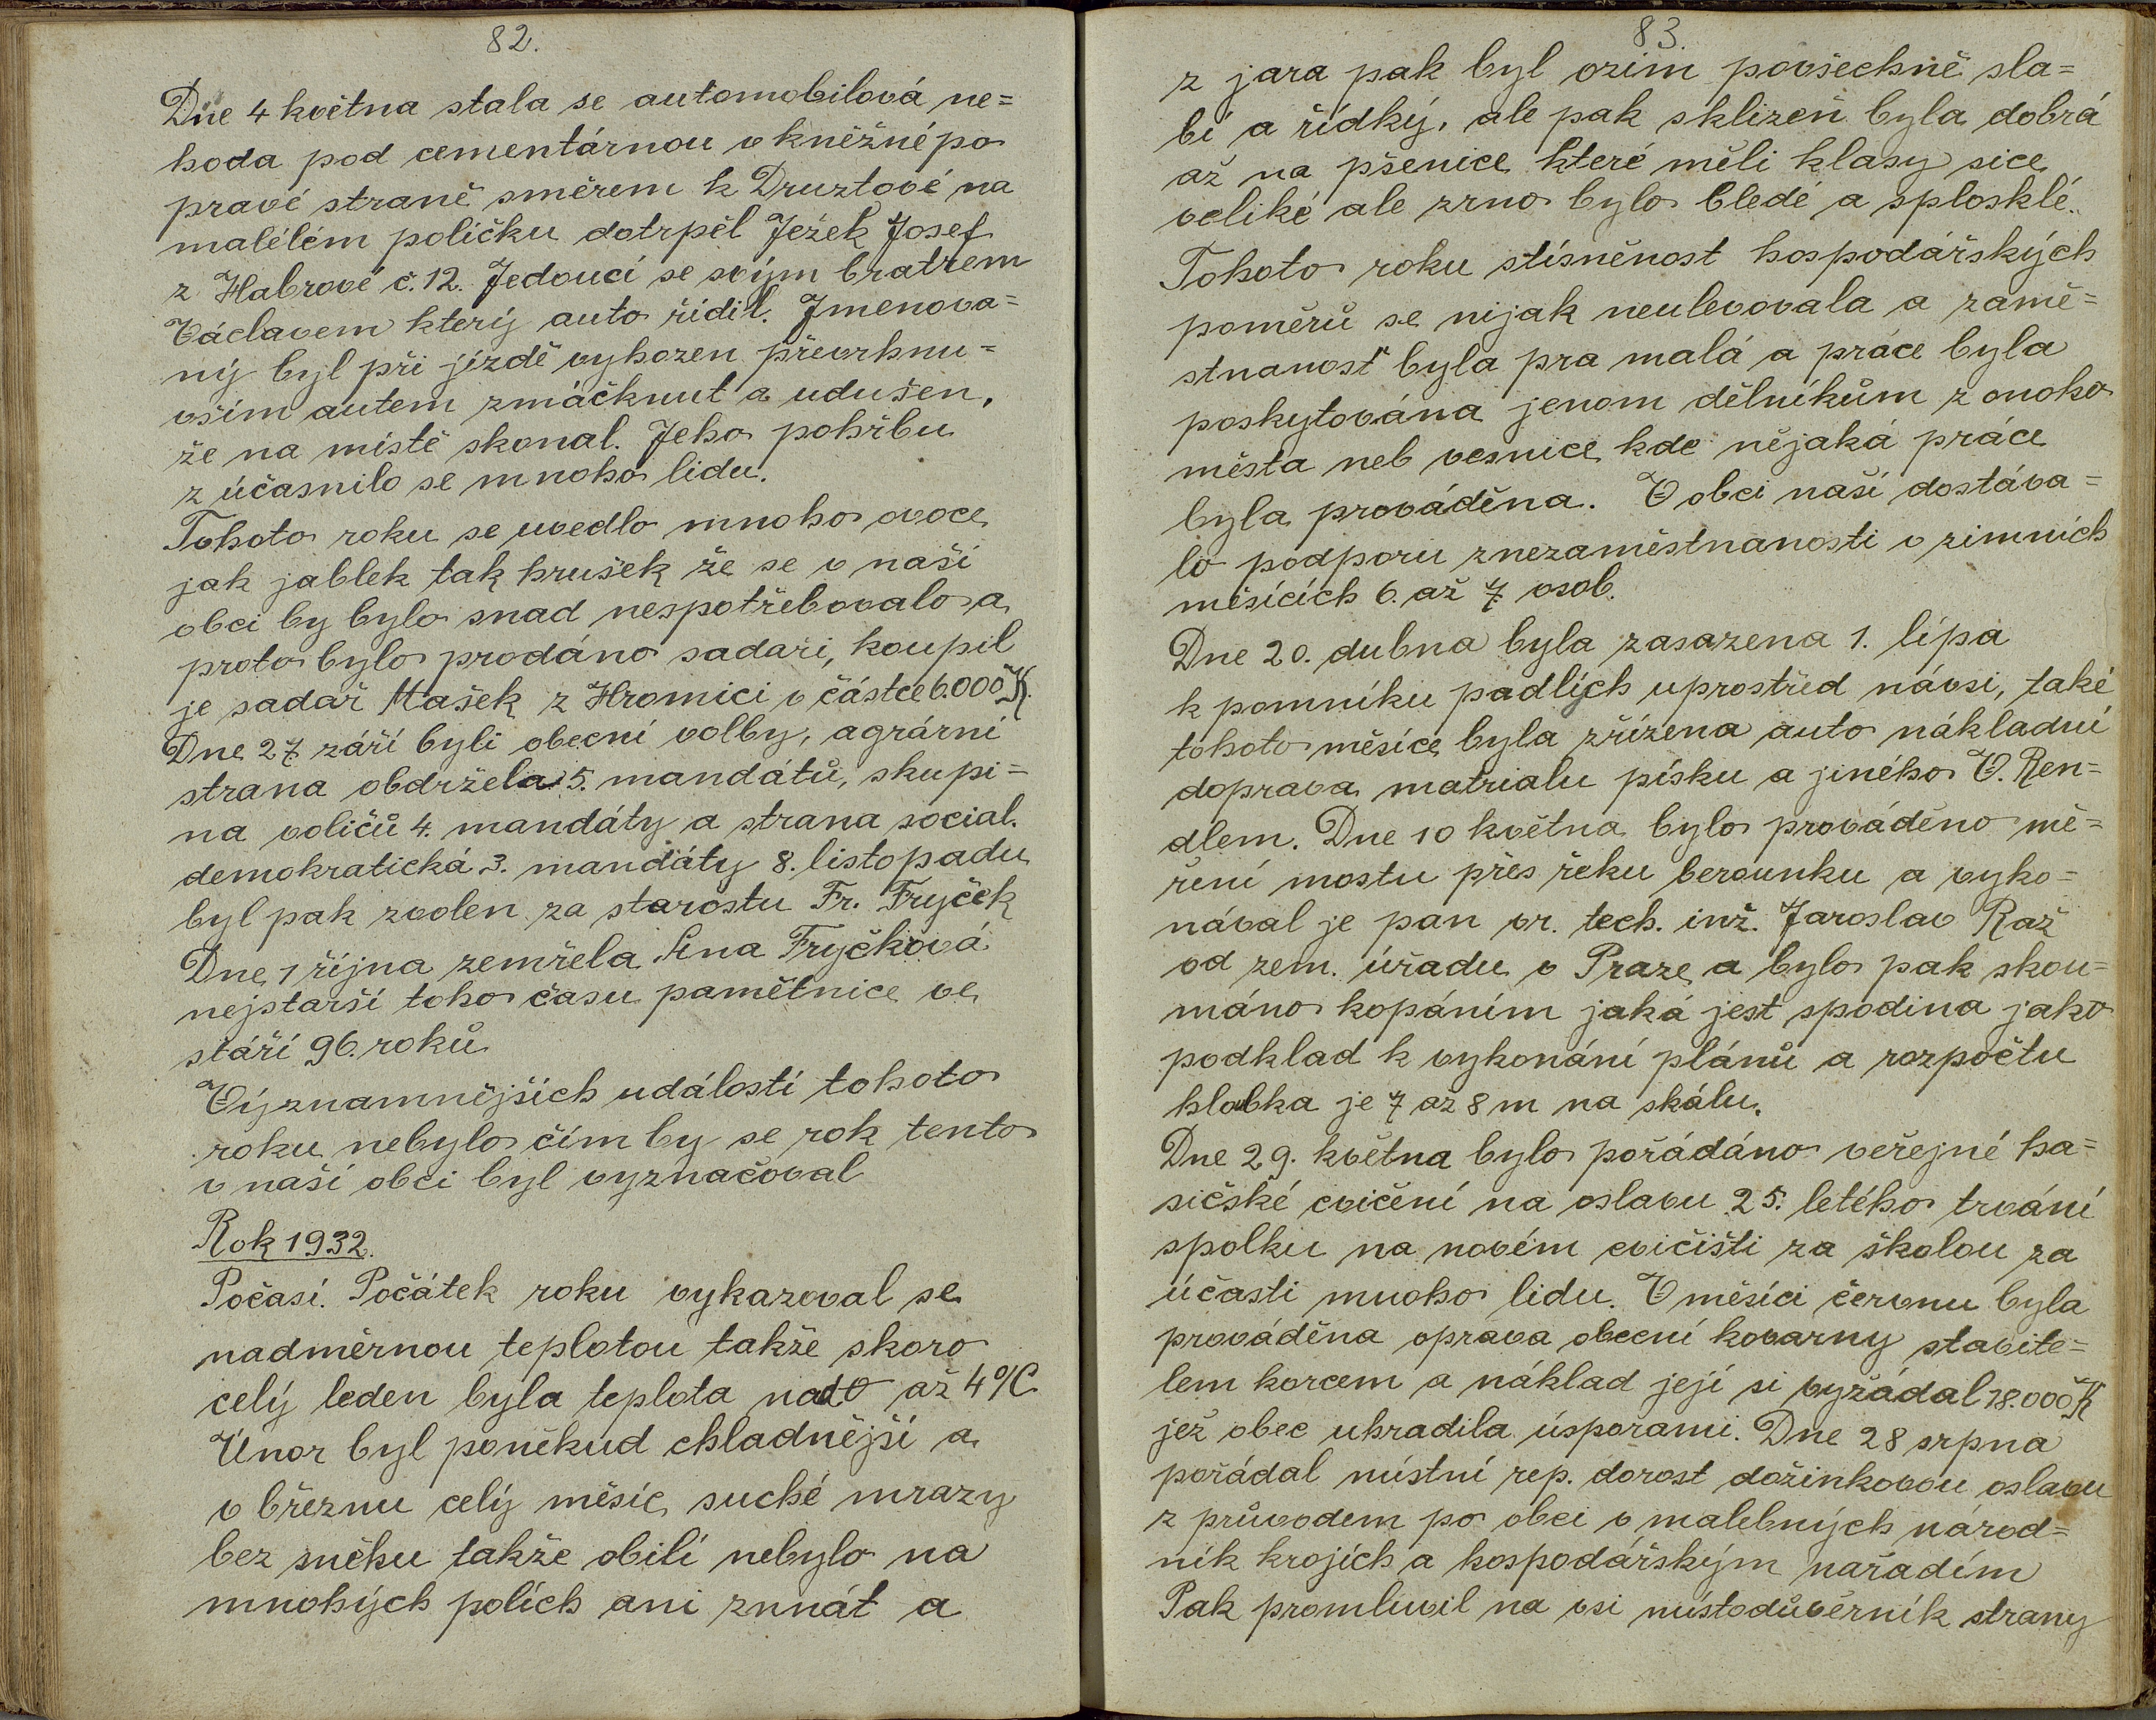 82.
Dne 4 května stala se automobilová ne=
hoda pod cementárnou v kněžné po
pravé straně směrem k Druztové na
malélém políčku dotrpěl Ježek Josef
z Habrové č. 12. Jedoucí se svým bratrem
Václavem který auto řídil. Jmenova=
ný byl při jízdě vyhozen převrhnu=
vším autem zmáčknut a udušen,
že na místě skonal. Jeho pohřbu
z účasnilo se mnoho lidu.
Tohoto roku se uvedlo mnoho ovoce
jak jablek tak hrušek že se v naší
obci by bylo snad nespotřebovalo a
proto bylo prodáno sadaři, koupil
je sadař Mašek z Hromici v částce 6.000 Kč.
Dne 27 září byli obecní volby, agrární
strana obdržela 5. mandátů, skupi=
na voličů 4. mandáty a strana social.
demokratická 3. mandáty 8. listopadu
byl pak zvolen za starostu Fr. Fryček
Dne 1 října zemřela Ana Fryčková
nejstarší toho času pamětnice ve
stáří 96. roků
Významnějších událostí tohoto
roku nebylo čím by se rok tento
v naší obci byl vyznačoval
Rok 1932.
Počasí. Počátek roku vykazoval se
nadměrnou teplotou takže skoro
celý leden byla teplota nad 0 až 4°C
Únor byl poněkud chladnější a
v březnu celý měsíc suché mrazy
bez sněhu takže obilí nebylo na
mnohých polích ani znnát a
83.
z jara pak byl ozim povšechně sla=
bí a řídký, ale pak sklizeň byla dobrá
až na pšenice které měli klasy sice
veliké ale zrno bylo bledé a splosklé.
Tohoto roku stísněnost hospodářských
poměrů se nijak neulevovala a zamě=
stnanost byla pra malá a práce byla
poskytována jenom dělníkům z onoho
města neb vesnice kde nějaká práce
byla prováděna. V obci naší dostáva=
lo podporu znezaměstnanosti v zimních
měsících 6. až 7. osob.
Dne 20. dubna byla zasazena 1. lípa
k pomníku padlých uprostřed návsi, také
tohoto měsíce byla zřízena auto nákladní
doprava matrialu písku a jiného V. Ren=
dlem. Dne 10 května bylo prováděno mě=
ření mostu přes řeku berounku a vyko=
nával je pan vr. tech. inž. Jaroslav Raž
od zem. úřadu v Praze a bylo pak skou=
máno kopáním jaká jest spodina jako
podklad k vykonání plánů a rozpočtu
hloubka je 7 až 8 m na skálu.
Dne 29. května bylo pořádáno veřejné ha=
sičské cvičení na oslavu 25. letého trvání
spolku na novém cvičišti za školou za
účasti mnoho lidu. V měsíci červnu byla
prováděna oprava obecní kovarny stavite=
lem korcem a náklad její si vyžádal 18.000 Kč
jež obec uhradila úsporami. Dne 28 srpna
pořádal místní rep. dorost dožinkovou oslavu
z průvodem po obci v malebných národ=
ník krojích a hospodářským nářadím
Pak promluvil na vsi místodůvěrník strany